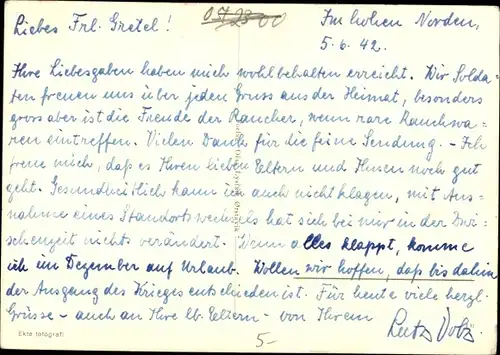 Liebes Frl. Gretel!
Im hohen Norden,
5.6.42.
Ihre Liebesgaben haben mich wohlbehalten erreicht. Wir Solda-
ten freuen uns über jeden Gruss aus der Heimat, besonders
gross aber ist die Freude der Raucher, wenn rare Rauchwa-
ren eintreffen. Vielen Dank für die feine Sendung. - Ich
freue mich, daß es Ihren lieben Eltern und Ihnen noch gut
geht. Gesundheitlich kann ich auch nicht klagen, mit Aus-
nahme eines Standortwechsels hat sich bei mir in der Zwi-
schenzeit nichts verändert. Wenn alles klappt, komme
ich im Dezember auf Urlaub. Wollen wir hoffen, daß bis dahin
der Ausgang des Krieges entschieden ist. Für heute viele herzl.
Grüsse - auch an Ihre lb. Eltern - von Ihrem
Ekte fotografi
5-